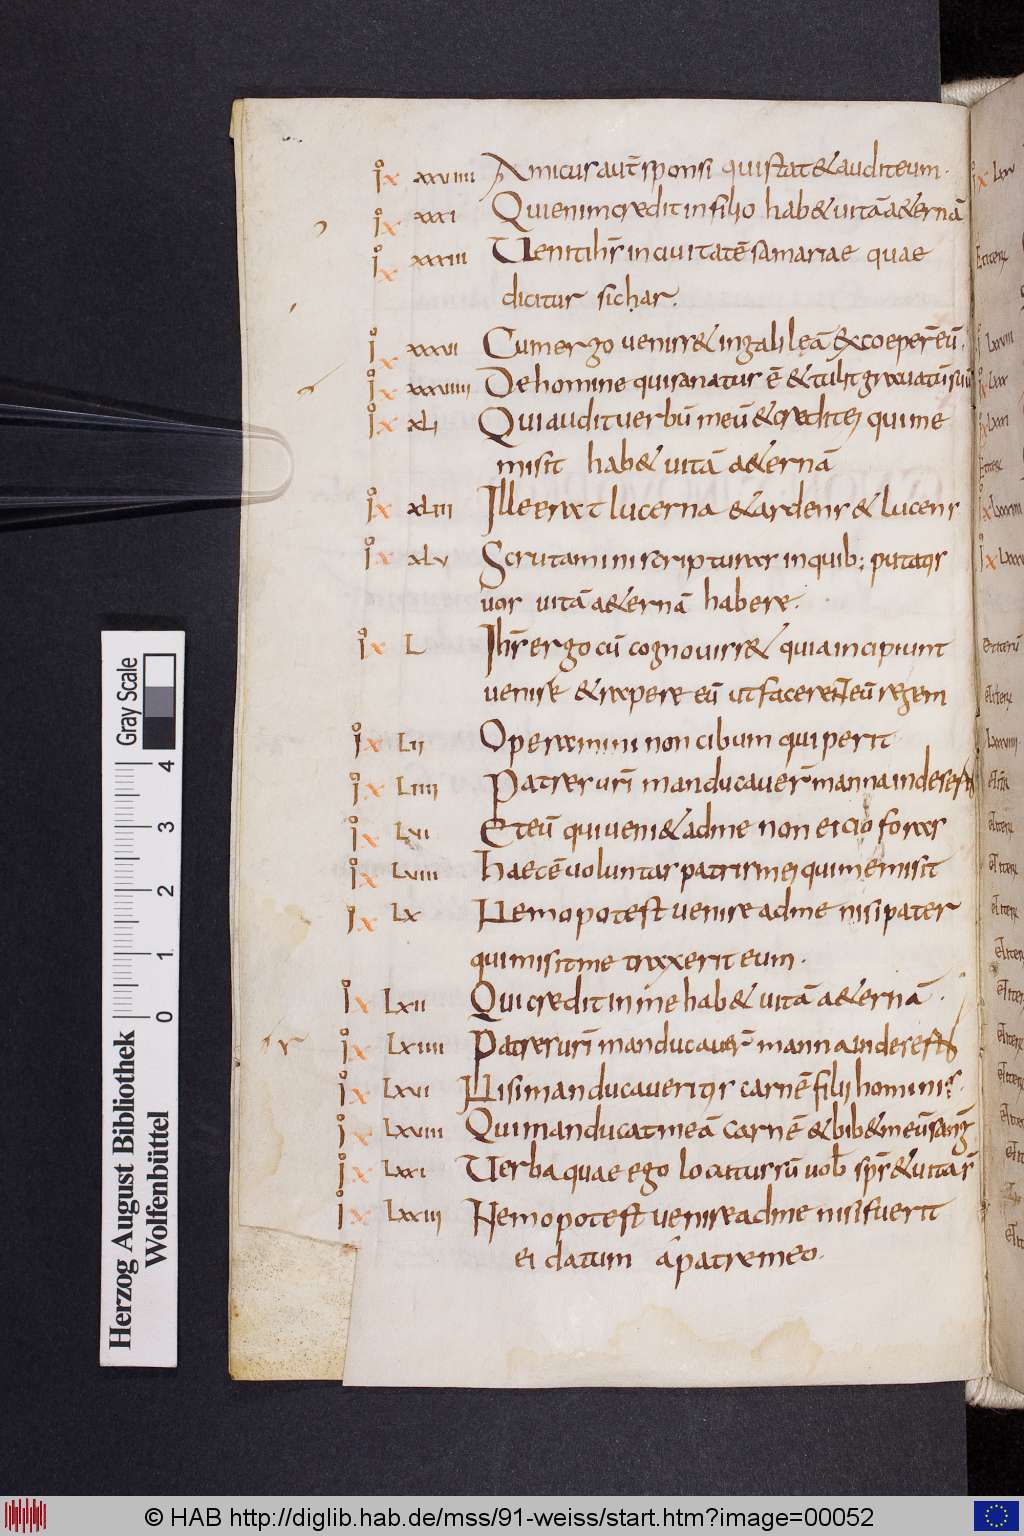 Io x xxviiii Amicus aut̄ sponsi qui stat & audit eum.
Io x xxxi Qui enim credit in filio hab& uitā a&ernā
Io x xxxiii Uenit ih̄s in ciuitatē samariae quae
dicitur sichar.
Io x xxxvi Cum ergo uenis& in galileā excoeper̄ eū.
Io x xxxviiii De homine qui sanatur ē & tulit grauatū suū
Io x xli Qui audit uerbū meū & credit ei qui me
misit hab& uitā a&ernā
Io x xliii Ille erat lucerna & ardens & lucens
Io x xlv Scrutamini scripturas in quib; putatis
uos uitā a&ernā habere.
Io x L Ih̄s ergo cū cognouiss& quia incipiunt
uenire & rapere eū ut facerent eū regem
Io x Lii Operamini non cibum qui perit
Io x Liiii Patres ur̄i manducauer̄ manna in deserto
Io x Lvi Et eū qui ueni& ad me non eicio foras
Io x Lviii Haec ē uoluntas patris mei qui me misit
Io x Lx Nemo potest uenire ad me nisi pater
qui misit me traxerit eum.
Io x Lxii Qui credit in me hab& uitā a&ernā.
Io x Lxiiii Patres ur̄i manducauer̄ manna in deserto
Io x Lxvi Nisi manducaueritis carnē filii hominis.
Io x Lxviii Qui manducat meā carnē & bib& meū sanḡ
Io x Lxxi Uerba quae ego locutus sū uob̄ sp̄s & uita s̄
Io x Lxxiii Nemo potest uenire ad me nisi fuerit
ei datum a patre meo.
Herzog August Bibliothek
Wolfenbüttel
0 1 2 3 4
Gray Scale
© HAB http://diglib.hab.de/mss/91-weiss/start.htm?image=00052